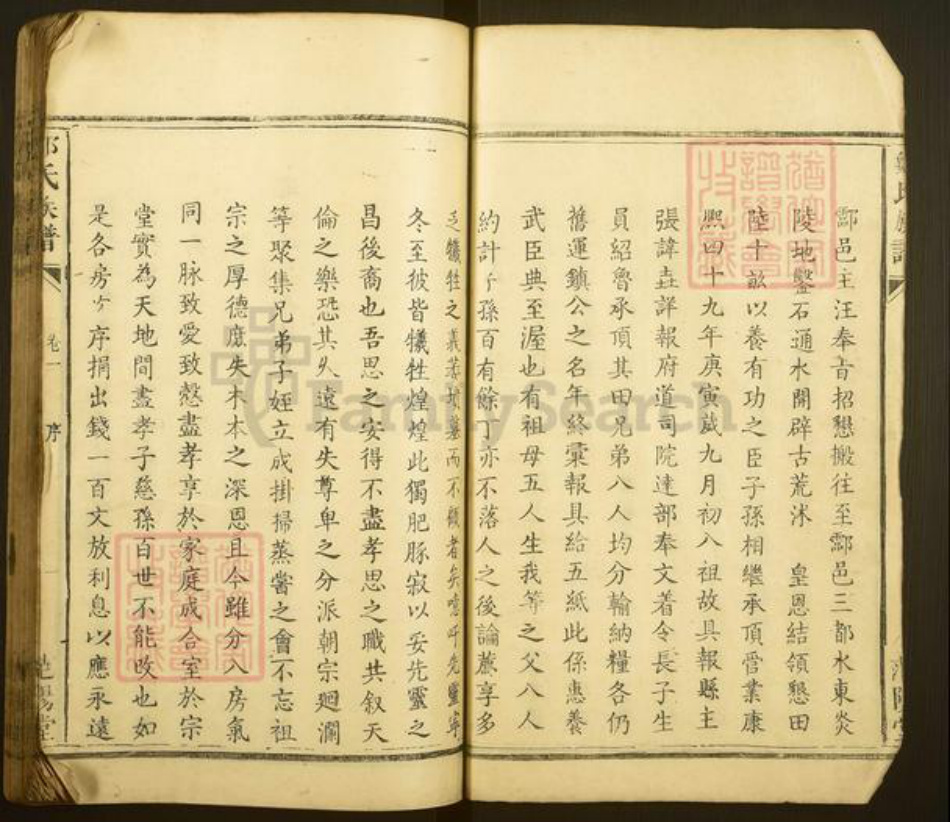 酃邑主汪奉旨招懇搬往至酃邑三都水東炎
陵地鑿石通水開辟古荒沭 皇恩結領懇田
陸十畝以養有功之臣子孫相繼承頂晋業康
熈四十九年庚寅歲九月初八祖故具報縣主
張諱垚詳報府道司院達部奉文着令長子生
員紹魯承頂其田兄弟八人均分輸納糧各仍
舊運鎮公之名年終彚報具給五紙此係惠養
武臣典至渥也有祖母五人生我等之父八人
約計子孫百有餘丁亦不落人之後論蔗享多
乏犠牲之義若墳墓而不顧者矣噫吁先靈寧
冬至彼皆犠牲煌煌此獨肥豚寂以妥先靈之
昌後裔也吾思之安得不盡孝思之職共叙天
倫之樂恐其久遠有失尊卑之分派朝宗廻瀾
等聚集兄弟子姪立成掛掃蒸嘗之會不忘祖
宗之厚德應失木本之深恩且今雖分入房氣
同一脉致愛致慤盡孝享於家庭成合室於宗
堂實為天地間盡孝子慈孫百世不能改也如
是各房序捐出錢一百文放利息以應永遠
氏族譜
卷一
序
FamilySearch